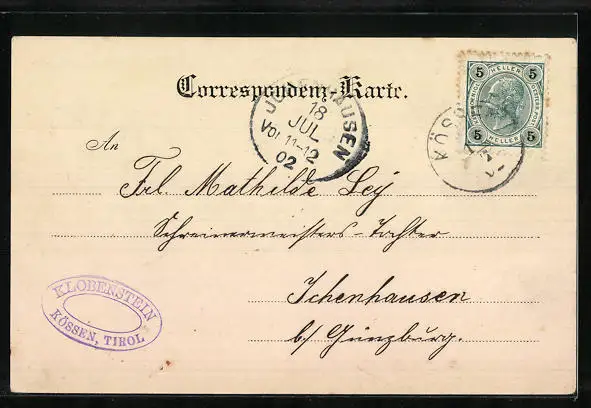 Correspondenz-Karte.
5 HELLER 5
5 5
ICHENHAUSEN
18
JUL
Vor 11-12
02
KÖSS
An
Frl. Mathilde Ley
Schreinermeisters-Tochter
Ichenhausen
b/ Günzburg.
KLOBENSTEIN
KÖSSEN, TIROL